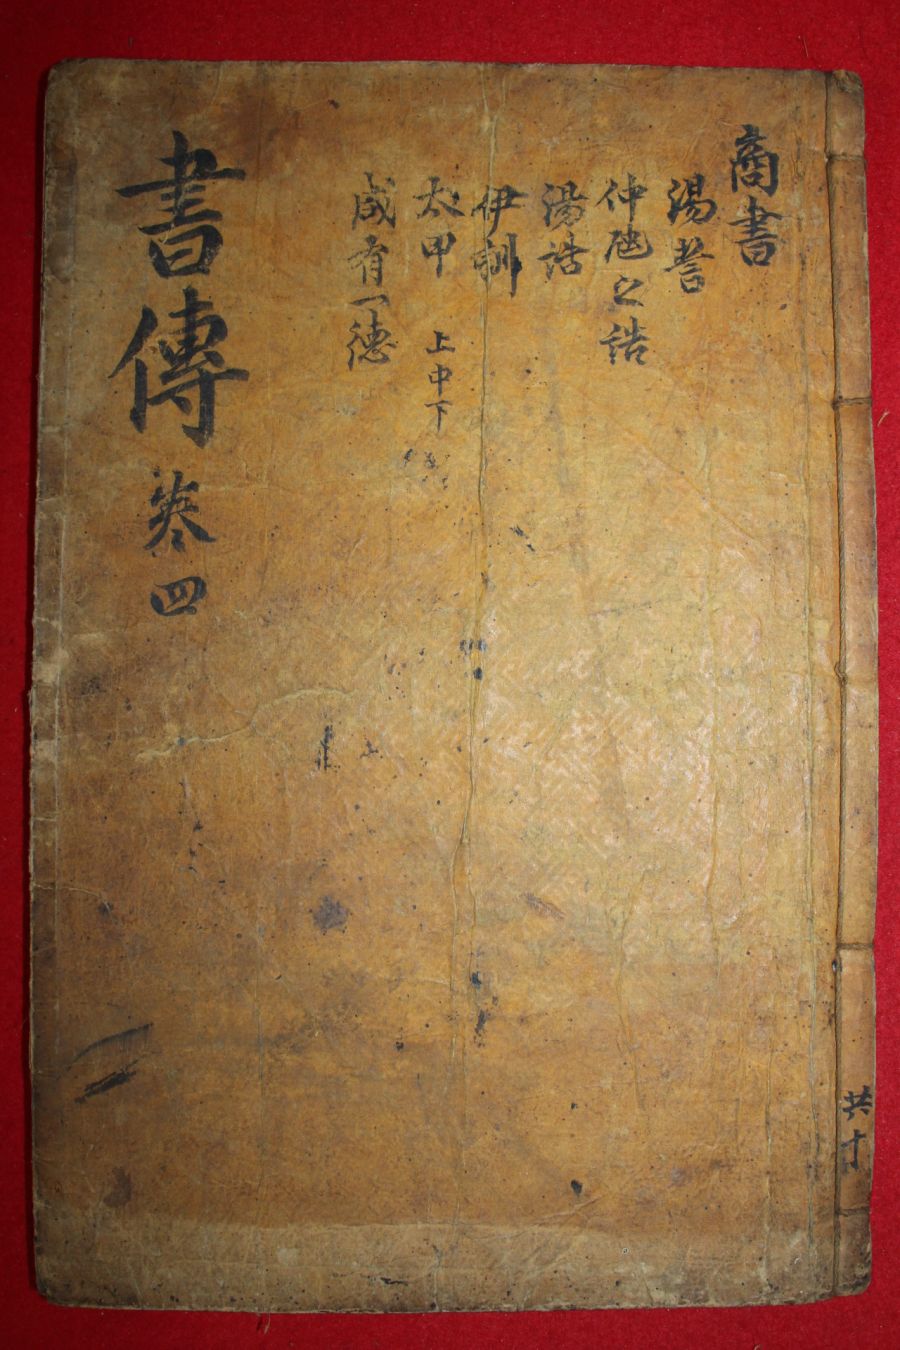 商書
湯誓
仲虺之誥
湯誥
伊訓
太甲 上中下
咸有一德
書傳 卷四
共十